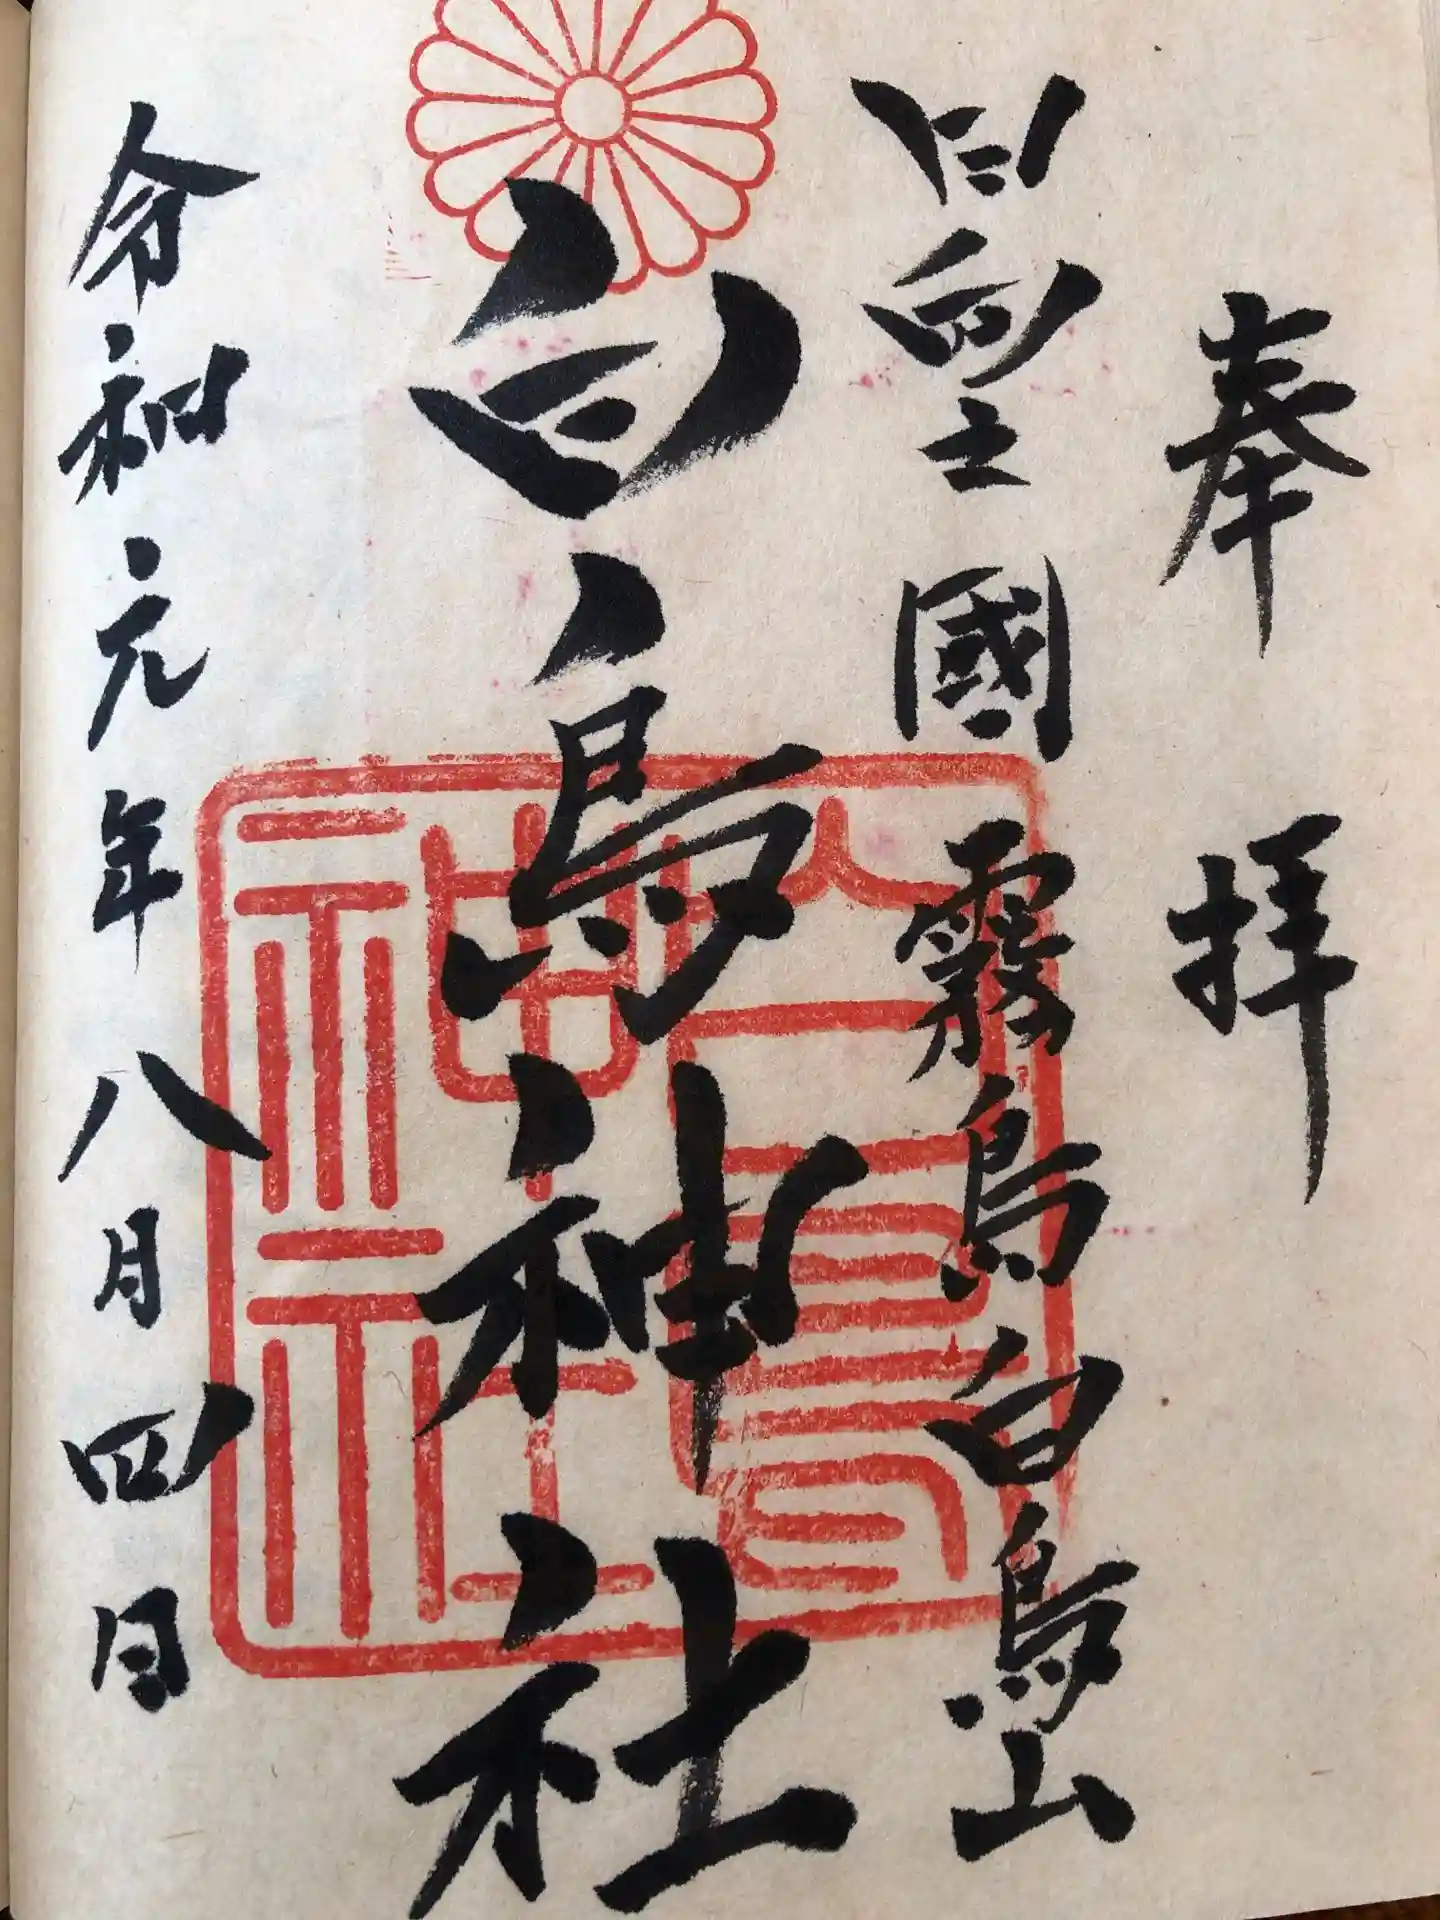 奉拝
日向之國霧島白鳥山
白鳥神社
令和元年八月四日
白鳥神社